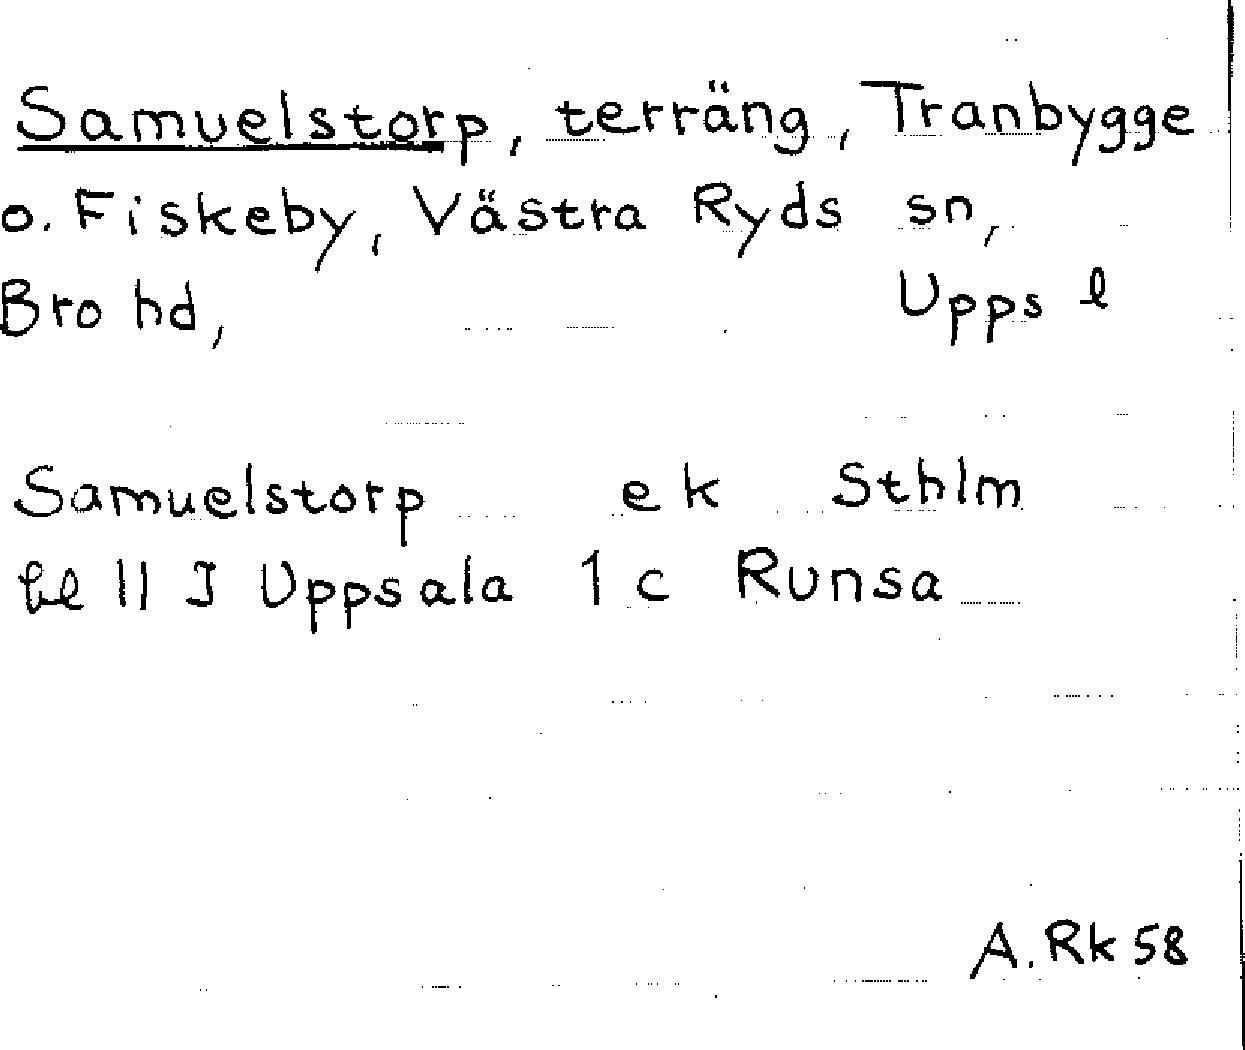 Samuelstorp, terräng, Tranbygge
o. Fiskeby, Västra Ryds sn,
Bro hd, Upps l
Samuelstorp ek Sthlm
bl 11 J Uppsala 1 c Runsa
A. Rk 58